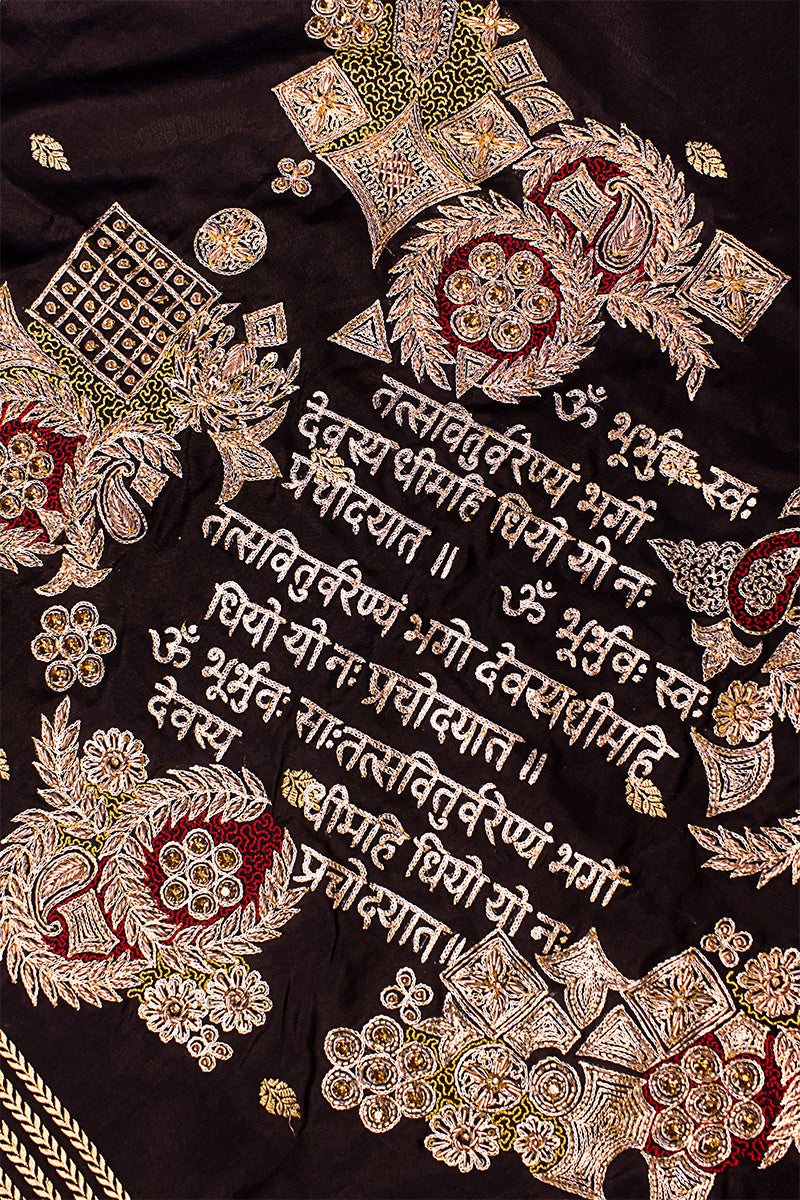 ॐ भूर्भुवः स्वः
तत्सवितुर्वरेण्यं भर्गो
देवस्य धीमहि धियो यो नः
प्रचोदयात ॥
ॐ भूर्भुवः स्वः
तत्सवितुर्वरेण्यं भगो देवस्यधीमहि
धियो यो नः प्रचोदयात ॥
ॐ भूर्भुवः साःतत्सवितुर्वरेण्यं भर्गो
देवस्य धीमहि धियो यो नः
प्रचोदयात॥